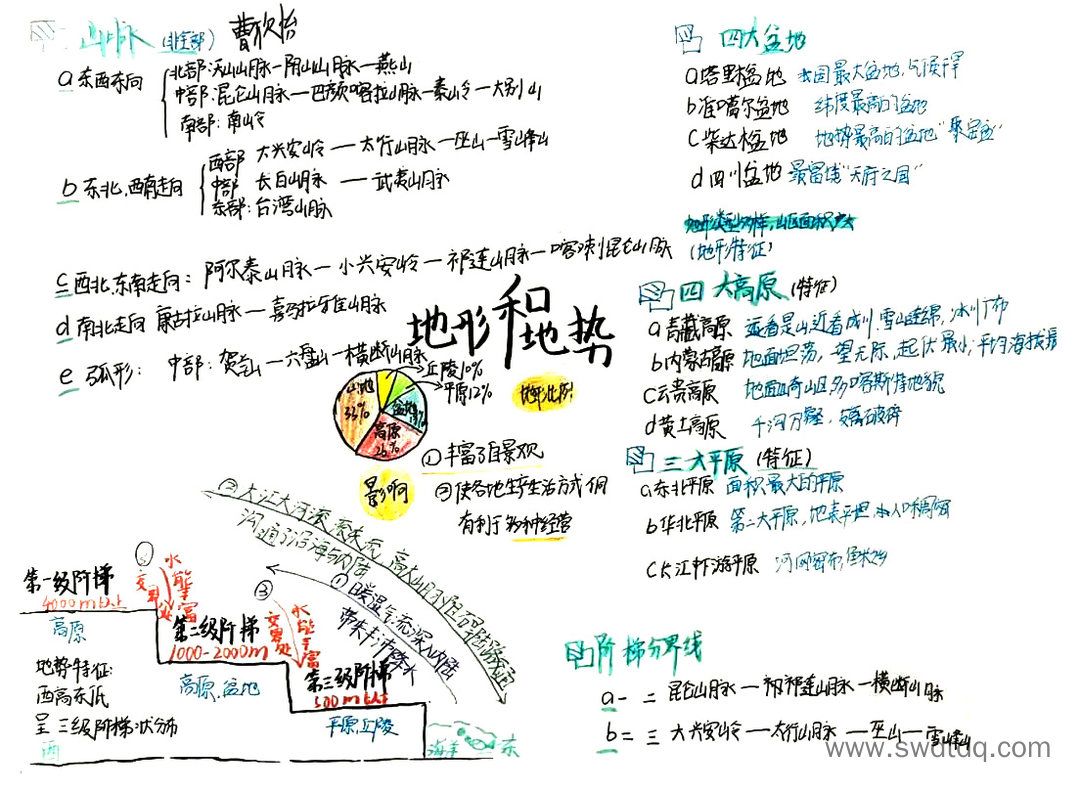 山脉
曹欣怡
a 东西走向
北部:天山山脉—阴山山脉—燕山
中部:昆仑山脉—巴颜喀拉山脉—秦岭—大别山
南部:南岭
b 东北,西南走向
西部 大兴安岭—太行山脉—巫山—雪峰山
中部 长白山脉—武夷山脉
东部:台湾山脉
c 西北,东南走向:阿尔泰山脉—小兴安岭—祁连山脉—喀喇昆仑山脉
d 南北走向
e 弧形:
中部:贺兰山—六盘山—横断山脉
地形和地势
山地
33%
高原
26%
盆地
丘陵10%
平原12%
地形比例
影响
① 丰富了自然景观
② 使各地生产生活方式不同
有利于多种经营
② 大江大河滚滚东流
沟通了沿海与内陆
① 暖湿气流深入内陆
带来丰沛降水
③
水能丰富
交界处
水能丰富
交界处
第一级阶梯
4000m以上
高原
第二级阶梯
1000-2000m
高原,盆地
第三级阶梯
500m以下
平原,丘陵
海洋
东
地势特征:
西高东低
呈三级阶梯状分布
西
四大盆地
a 塔里木盆地 我国最大盆地,气候干旱
b 准噶尔盆地 纬度最高的盆地
c 柴达木盆地 地势最高的盆地"聚宝盆"
d 四川盆地 最富饶"天府之国"
(地形特征)
四大高原(特征)
a 青藏高原 远看是山,近看成川,雪山连绵,冰川广布
b 内蒙古高原 地面坦荡,一望无际,起伏最小,平均海拔
c 云贵高原 地面崎岖多喀斯特地貌
d 黄土高原 千沟万壑,支离破碎
三大平原(特征)
a 东北平原 面积最大的平原
b 华北平原 第二大平原,地表平坦,人口稠密
c 长江中下游平原 河网密布,鱼米之乡
阶梯分界线
a 一 二 昆仑山脉—祁连山脉—横断山脉
b 二 三 大兴安岭—太行山脉—巫山—雪峰山
www.swdtdq.com